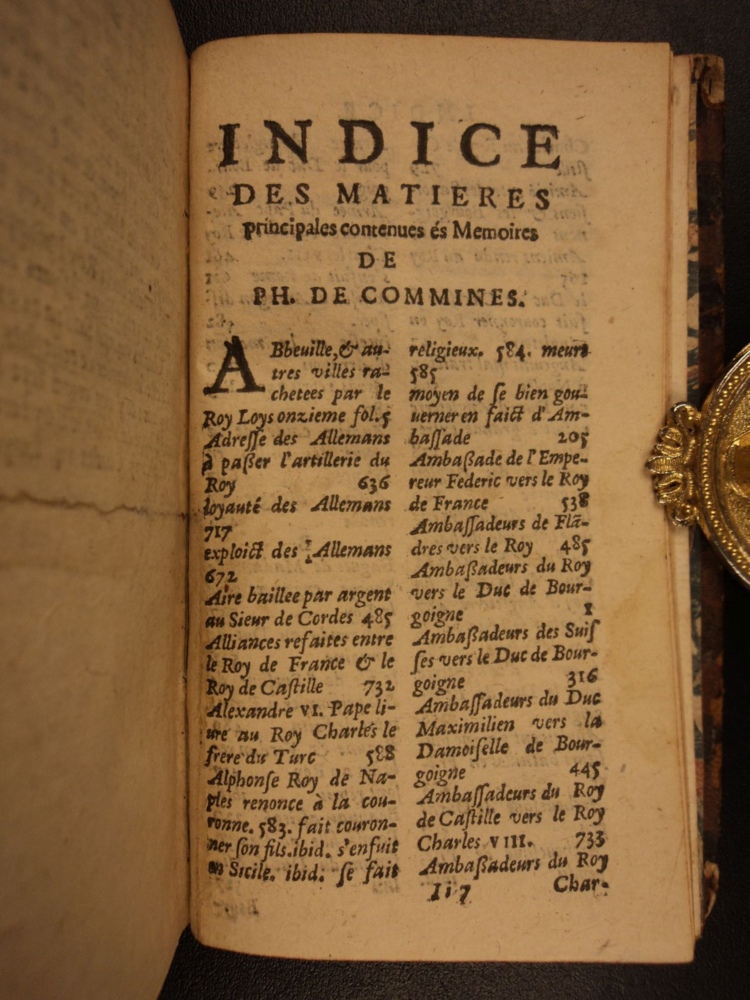 INDICE
DES MATIERES
principales contenues és Memoires
DE
PH. DE COMMINES.
ABbeuille, & au-
tres villes ra-
chetees par le
Roy Loys onzieme fol. 5
Adresse des Allemans
à paßer l'artillerie du
Roy 636
loyauté des Allemans
717
exploict des Allemans
672
Aire baillee par argent
au Sieur de Cordes 485
Alliances refaites entre
le Roy de France & le
Roy de Castille 732
Alexandre VI. Pape li-
ure au Roy Charles le
frere du Turc 588
Alphonse Roy de Na-
ples renonce à la cou-
ronne. 583. fait couron-
ner son fils. ibid. s'enfuit
en Sicile. ibid. se fait
religieux. 584. meurt
585
moyen de se bien gou-
uerner en faict d'Am-
bassade 205
Ambaßade de l'Empe-
reur Federic vers le Roy
de France 538
Ambassadeurs de Flã-
dres vers le Roy 485
Ambaßadeurs du Roy
vers le Duc de Bour-
goigne 1
Ambaßadeurs des Suis
ses vers le Duc de Bour-
goigne 316
Ambassadeurs du Duc
Maximilien vers la
Damoiselle de Bour-
goigne 445
Ambassadeurs du Roy
de Castille vers le Roy
Charles VIII. 733
Ambaßadeurs du Roy
Ii 7 Char-